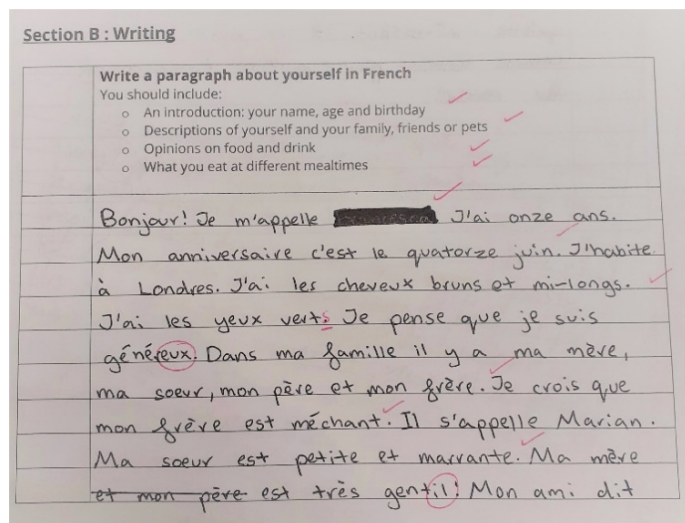 Section B : Writing
Write a paragraph about yourself in French
You should include:
o An introduction: your name, age and birthday
o Descriptions of yourself and your family, friends or pets
o Opinions on food and drink
o What you eat at different mealtimes
Bonjour! Je m'appelle J'ai onze ans.
Mon anniversaire c'est le quatorze juin. J'habite
à Londres. J'ai les cheveux bruns et mi-longs.
J'ai les yeux verts Je pense que je suis
généreux. Dans ma famille il y a ma mère,
ma soeur, mon père et mon frère. Je crois que
mon frère est méchant. Il s'appelle Marian.
Ma soeur est petite et marrante. Ma mère
et mon père est très gentil! Mon ami dit